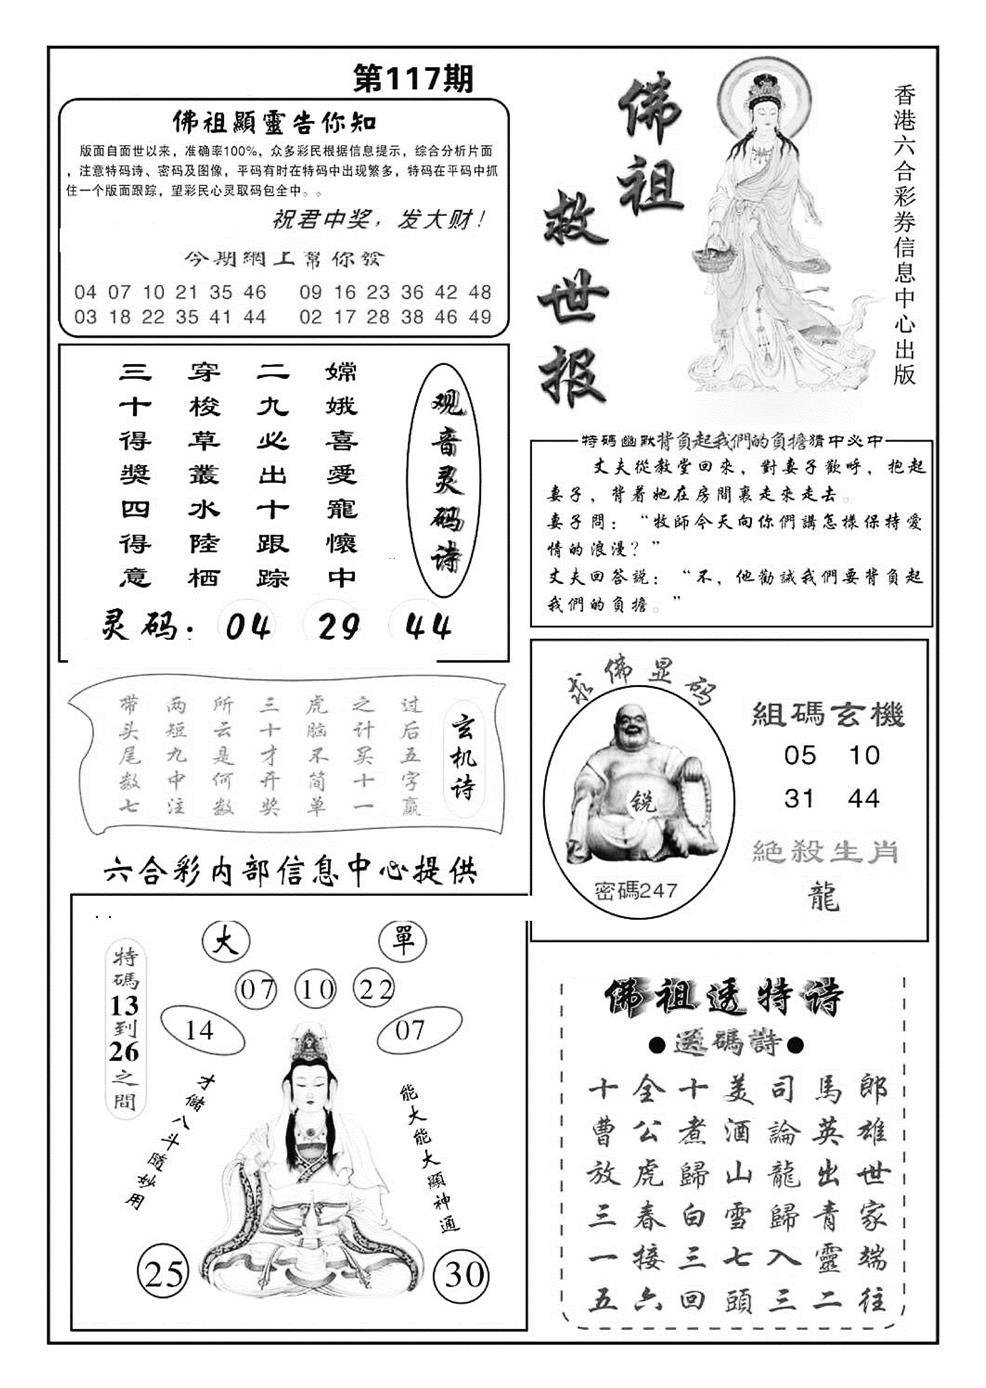 第117期
佛祖顯靈告你知
版面自面世以来，准确率100%，众多彩民根据信息提示，综合分析片面
，注意特码诗、密码及图像，平码有时在特码中出现繁多，特码在平码中抓
住一个版面跟踪，望彩民心灵取码包全中。。
祝君中奖，发大财！
今期網上幫你發
04 07 10 21 35 46 09 16 23 36 42 48
03 18 22 35 41 44 02 17 28 38 46 49
佛祖
救世报
香港六合彩券信息中心出版
观音灵码诗
嫦娥喜愛寵懷中
二九必出十跟踪
穿梭草叢水陸栖
三十得獎四得意
灵码：04 29 44
特碼幽默背負起我們的負擔猜中必中
丈夫從教堂回來，對妻子歡呼，抱起
妻子，背着她在房間裏走來走去。
妻子問：“牧師今天向你們講怎樣保持愛
情的浪漫？”
丈夫回答說：“不，他勸誡我們要背負起
我們的負擔。”
玄机诗
过后五字赢
之计买十一
虎脑不简单
三十才开奖
所云是何数
两短九中注
带头尾数七
六合彩内部信息中心提供
求佛显码
锐
密碼247
組碼玄機
05 10
31 44
絕殺生肖
龍
大 單
07 10 22
14 07
特碼13到26之間
才儲八斗隨妙用
能大能大顯神通
25 30
佛祖透特诗
●送碼詩●
郎雄世家端往
馬英出青靈二
司論龍歸入三
美酒山雪七頭
十煮歸白三回
全公虎春接六
十曹放三一五